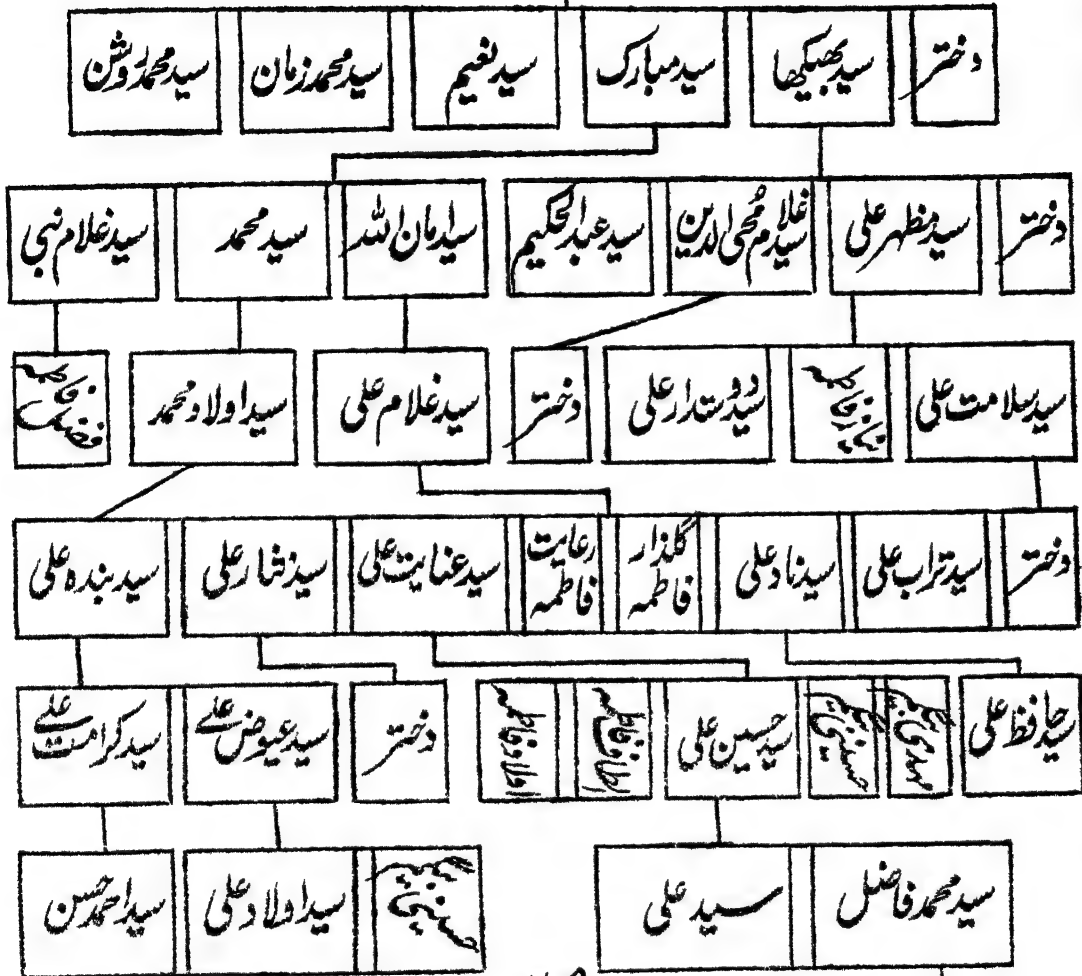 دختر سید بھیکھا سید مبارک سید نعیم سید محمد زمان سید محمد روشن
دختر سید مظہر علی سید غلام محی الدین سید عبد الحکیم سید امان اللہ سید محمد سید غلام نبی
سید سلامت علی نیاز فاطمہ سید دوستدار علی دختر سید غلام علی سید اولاد محمد فضیلت فاطمہ
دختر سید تراب علی سید ناد علی گلذار فاطمہ رعایت فاطمہ سید عنایت علی سید ذفتار علی سید بندہ علی
سید حافظ علی مہدی بیگم حسینی بیگم سید حسین علی الطاف فاطمہ اولاد فاطمہ دختر سید عیوض علی سید کرامت علی
سید محمد فاضل سید علی حسینی بیگم سید اولاد علی سید احمد حسن